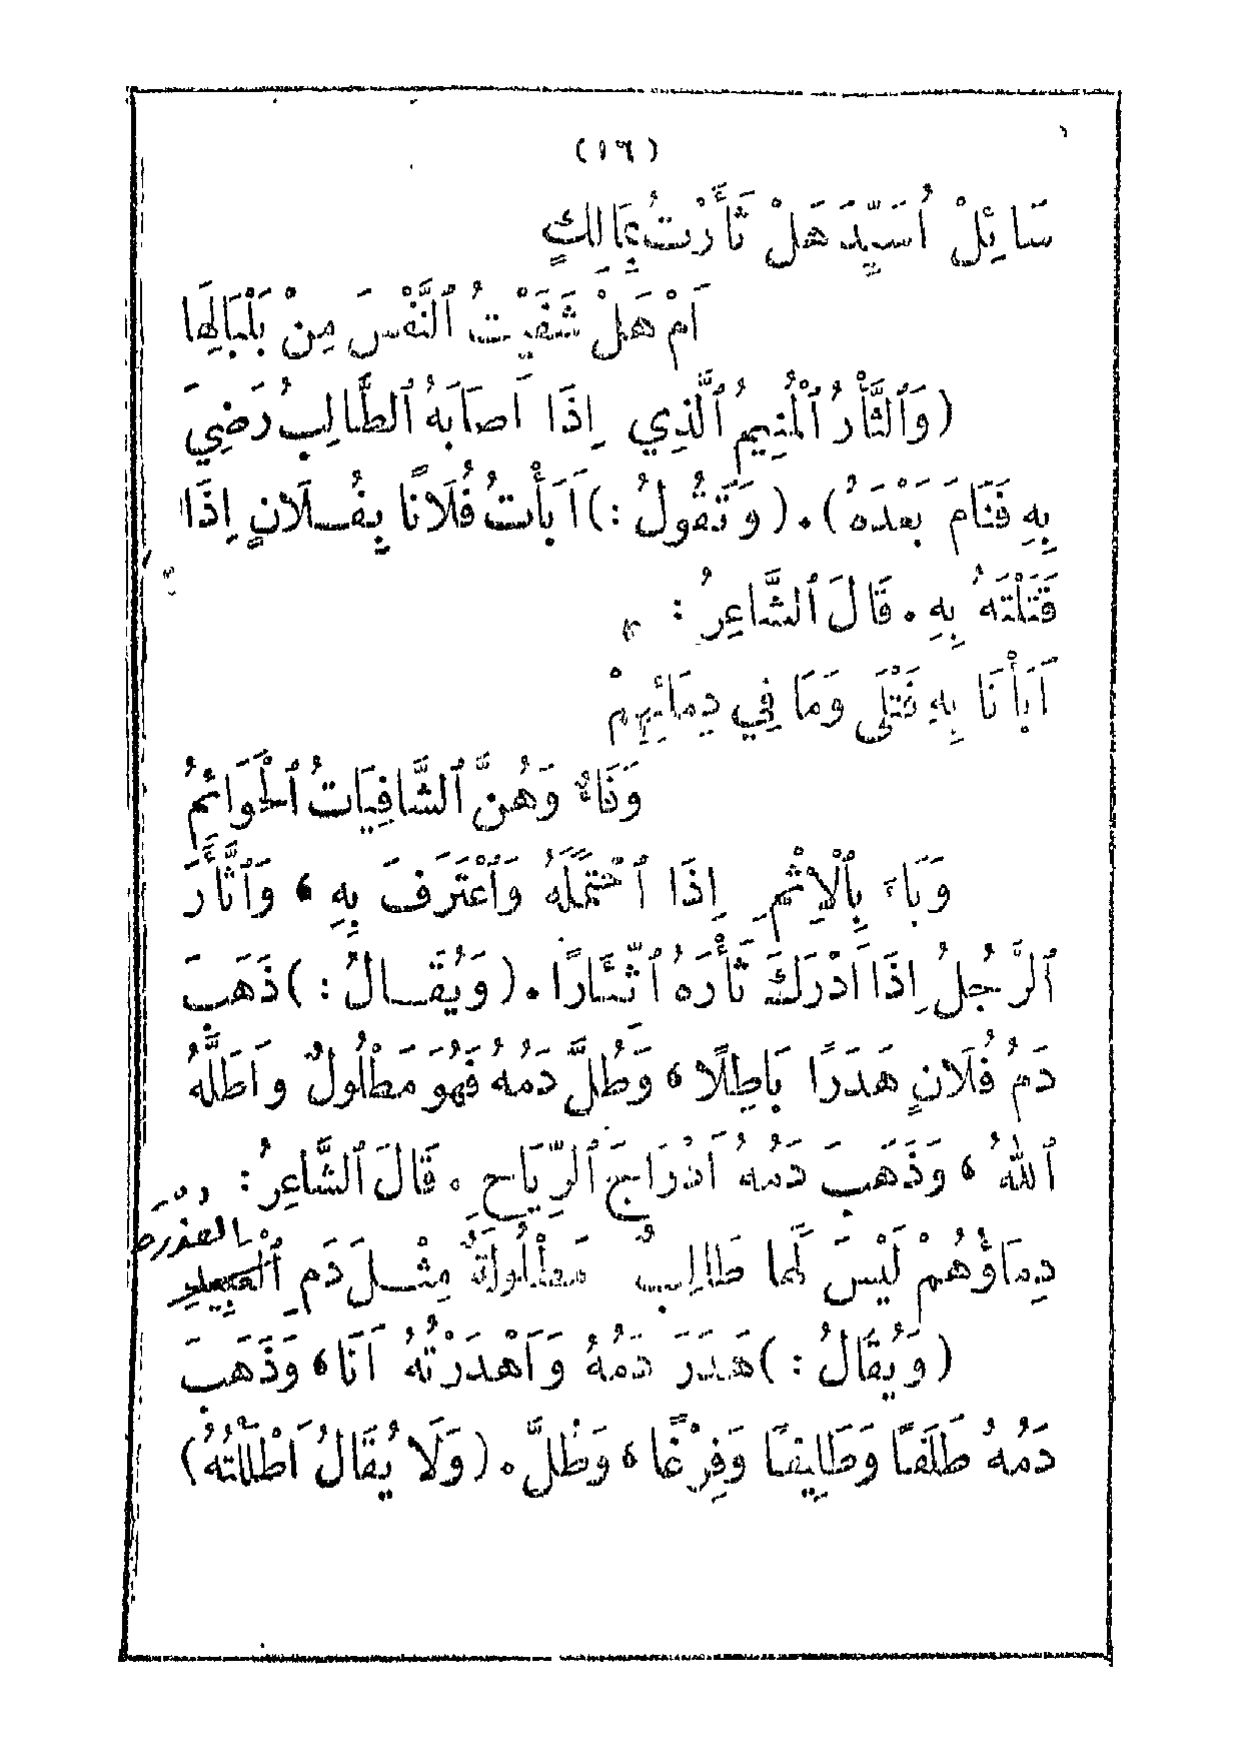 (١٦)
سَائِلْ أُسَيِّدَ هَلْ ثَأَرْتُ بِمَالِكٍ
اَمْ هَلْ شَفَيْتُ ٱلنَّفْسَ مِنْ بَلْبَالِهَا
(وَٱلثَّأْرُ ٱلْمُنِيمُ ٱلَّذِي إِذَا اَصَابَهُ ٱلطَّالِبُ رَضِيَ
بِهِ فَنَامَ بَعْدَهُ). (وَتَقُولُ:) اَبَأْتُ فُلَانًا بِفُلَانٍ إِذَا
قَتَلْتَهُ بِهِ. قَالَ ٱلشَّاعِرُ:
اَبَأْنَا بِهِ قَتْلَى وَمَا فِي دِمَائِهِمْ
وَفَاءٌ وَهُنَّ ٱلشَّافِيَاتُ ٱلْحَوَائِمُ
وَبَاءَ بِٱلْاِثْمِ إِذَا ٱحْتَمَلَهُ وَٱعْتَرَفَ بِهِ، وَٱثَّأَرَ
ٱلرَّجُلُ إِذَا اَدْرَكَ ثَأْرَهُ ٱثِّئَارًا. (وَيُقَالُ:) ذَهَبَ
دَمُ فُلَانٍ هَدَرًا بَاطِلًا، وَطُلَّ دَمُهُ فَهُوَ مَطْلُولٌ وَاَطَلَّهُ
ٱللهُ، وَذَهَبَ دَمُهُ اَدْرَاجَ ٱلرِّيَاحِ. قَالَ ٱلشَّاعِرُ:
دِمَاؤُهُمْ لَيْسَ لَهَا طَالِبٌ مَطْلُولَةٌ مِثْلَ دَمِ ٱلْعَبِيدِ
(وَيُقَالُ:) هَدَرَ دَمُهُ وَاَهْدَرْتُهُ اَنَا، وَذَهَبَ
دَمُهُ طَلَفًا وَطَلِيفًا وَفِرْغًا، وَطُلَّ. (وَلَا يُقَالُ اَطْلَلْتُهُ)